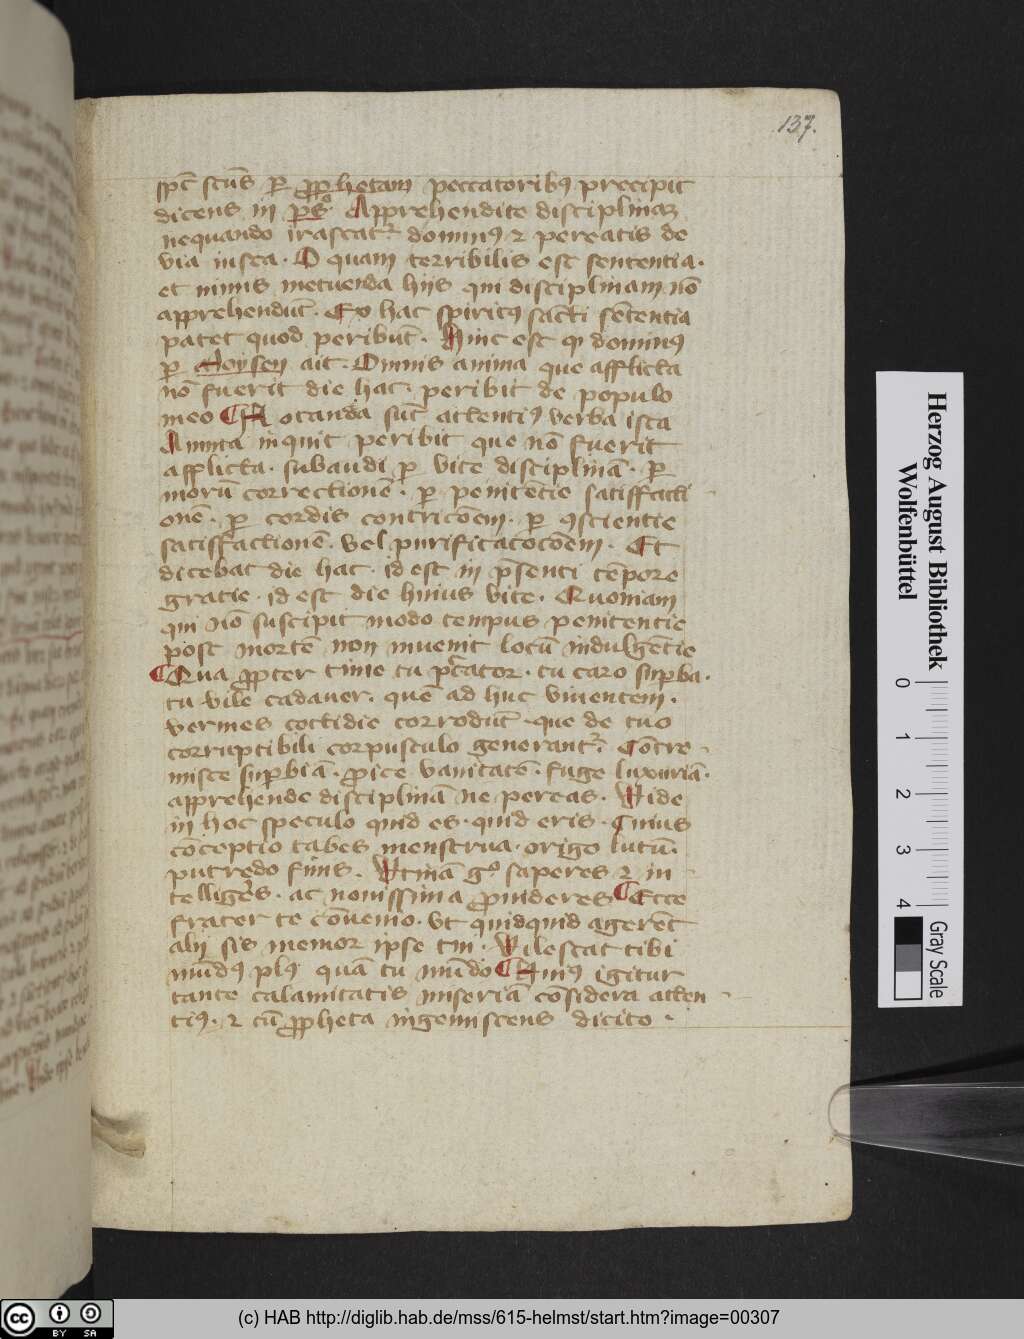 137.
spc̄ scūs ꝑ ꝓphetam peccatoribꝯ precipit
dicens in ps̄o Apprehendite disciplinaꝫ
nequando irascat᷑ dominꝯ ⁊ pereatis de
via iusta · O quam terribilis est sententia ·
et nimis metuenda hijs qui disciplinam nō
apprehendūt · Ex hac spiritꝯ sācti sētentia
patet quod peribūt · Hinc est qꝫ dominꝯ
ꝑ Moysen ait · Omnis anima que afflicta
nō fuerit die hac · peribit de populo
meo Notanda sūt attentiꝯ verba ista
Anima inquit peribit que nō fuerit
afflicta · subaudi ꝑ vite disciplinā · ꝑ
morū correctionē · ꝑ penitētie satisffacti
onē · ꝑ cordis contricōem · ꝑ ꝯscientie
satisffactionē · vel purificatocōem · Et
dicebat die hac · id est in p̄senti tēpore
gratie · id est die huius vite · Quoniam
qui nō suscipit modo tempus penitentie
post mortē non inuenit locū indulgētie
Qua ꝓpter time tu pc̄cator · tu caro suꝑba ·
tu vile cadauer · quē ad huc viuentem ·
vermes cottidie corrodūt · que de tuo
corruptibili corpusculo generant᷑ · Cōtre
misce suꝑbiā · ꝓice vanitatē · fuge luxuriā ·
apprehende disciplinā ne pereas · Vide
in hoc speculo quid es · quid eris · Cuius
cōceptio tabes menstrua · origo lutū ·
putredo finis · Vtinā gͦ saperes ⁊ in
telligēs · ac nouissima ꝓuideres Ecce
frater te cōuenio · vt quidquid agerēt
alij sis memor ipse tui · Vilescat tibi
mūdꝯ plꝯ quā tu mūdo Huiꝯ igitur
tante calamitatis miseriā cōsidera atten
tiꝯ · ⁊ cū ꝓpheta ingemiscens dicito ·
Herzog August Bibliothek
Wolfenbüttel
0 1 2 3 4
Gray Scale
cc BY SA
(c) HAB http://diglib.hab.de/mss/615-helmst/start.htm?image=00307